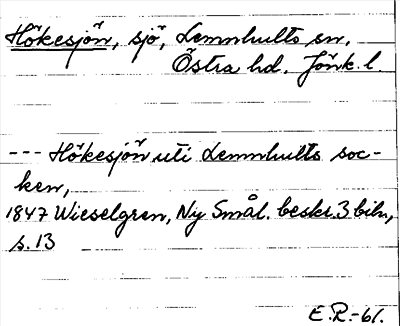 Hökesjön, sjö, Lemnhults sn.
Östra hd. Jönk. l.
--- Hökesjön uti Lemnhults soc-
ken,
1847 Wieselgren, Ny Smål. beskr. 3 bih.,
s. 13
E.R.-61.